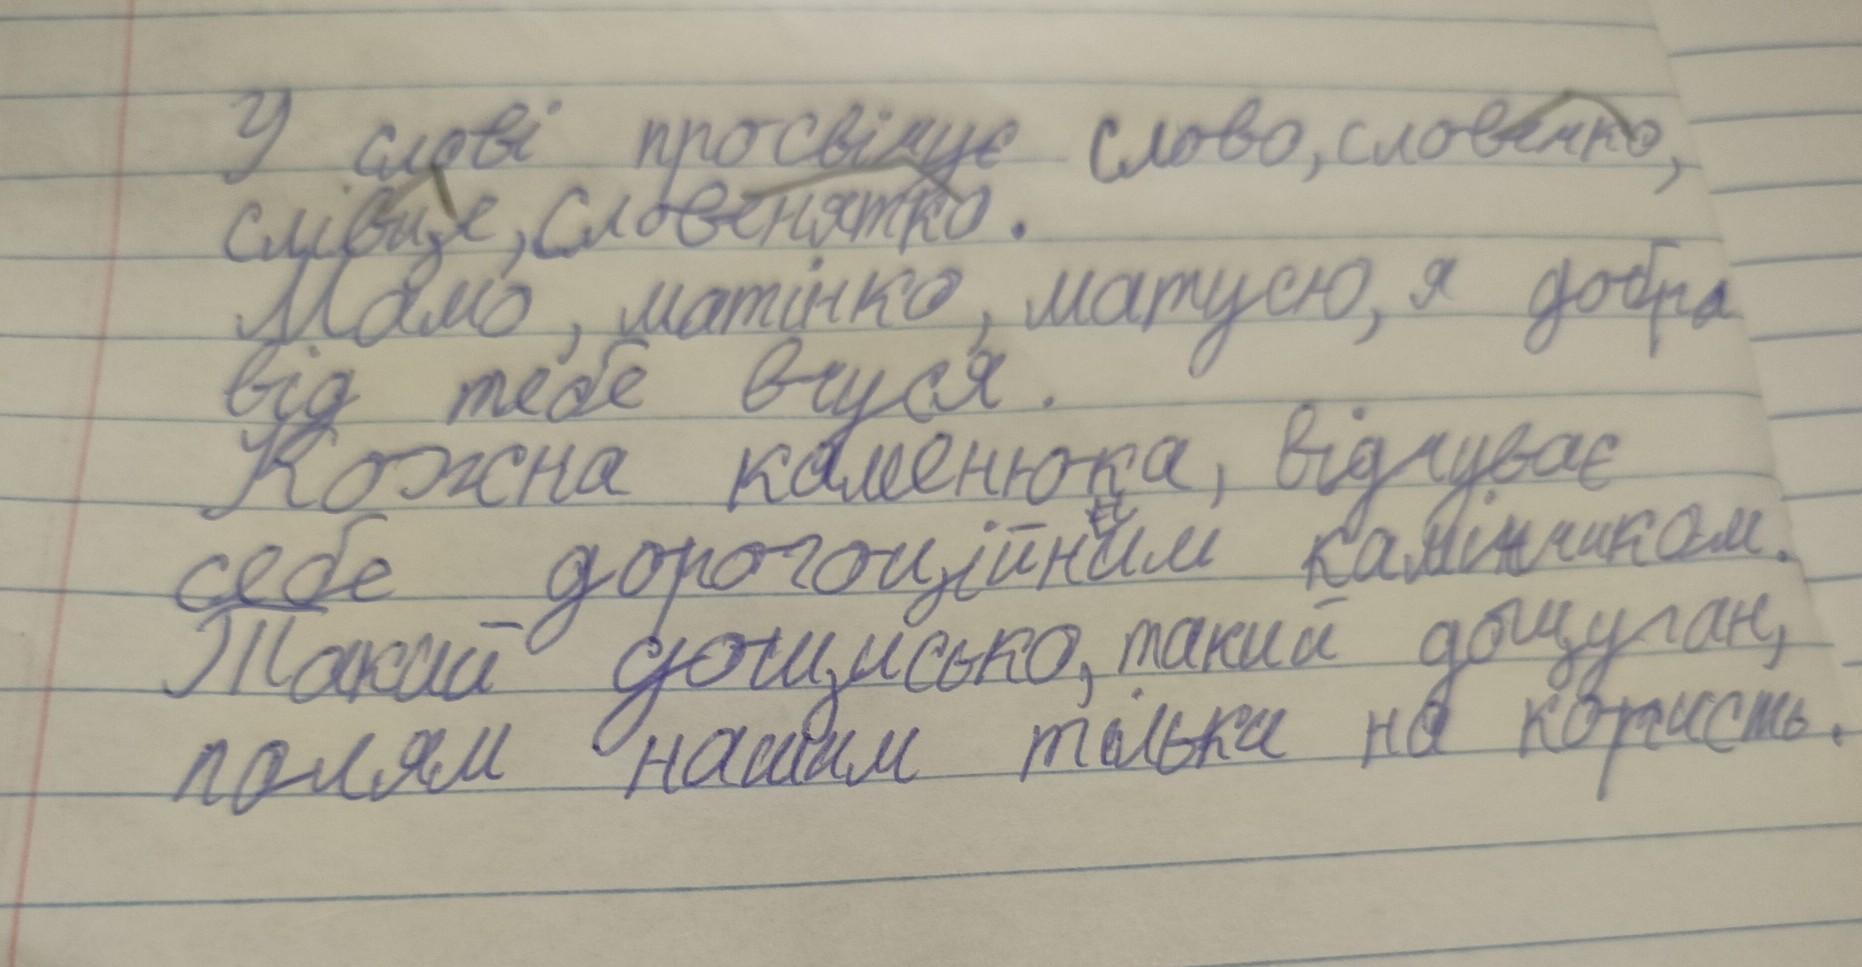 У слові просвічує слово, словечко,
слівце, словенятко.
Мамо, матінко, матусю, я добра
від тебе вчуся.
Кожна каменюка, відчуває
себе дорогоційним камінчиком.
Такий дощисько, такий дощуган,
полям нашим тільки на користь.